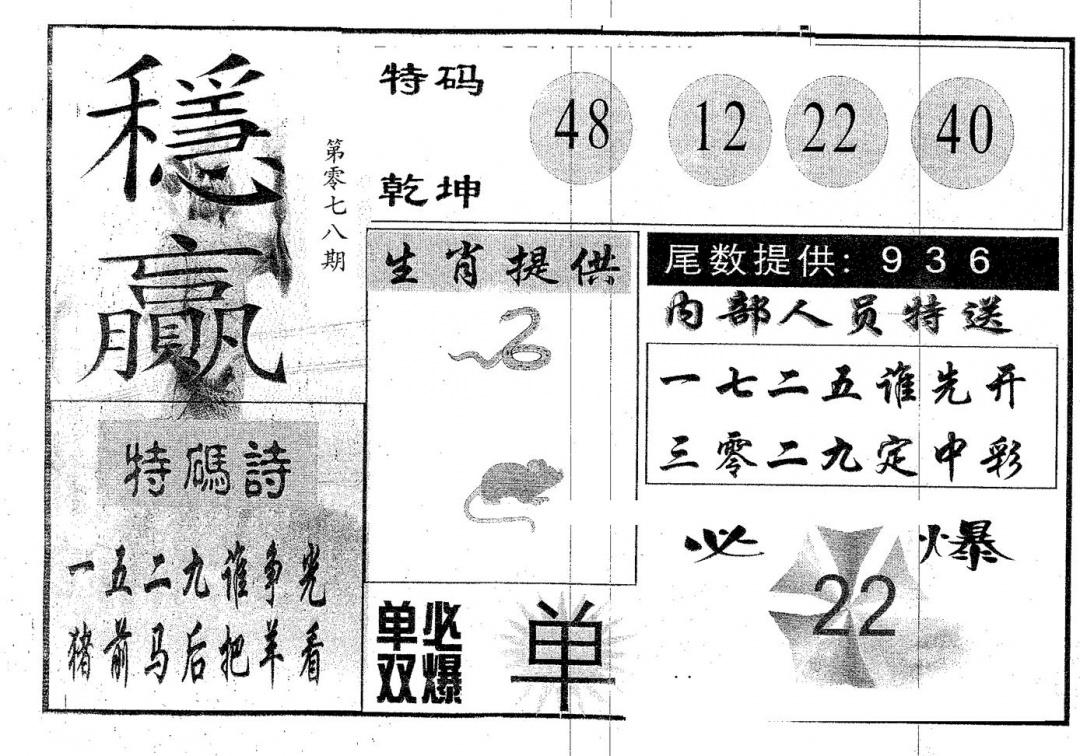 穩贏
第零七八期
特码
48 12 22 40
乾坤
生肖提供
尾数提供: 9 3 6
内部人员特送
一七二五谁先开
三零二九定中彩
特碼詩
一五二九谁争光
猪前马后把羊看
单必
双爆
单
必 22 爆